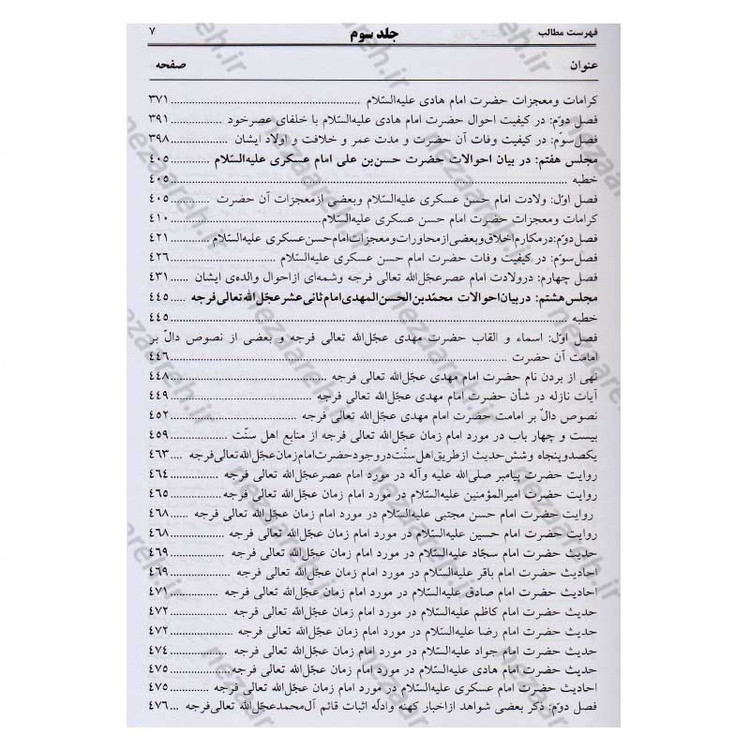 فهرست مطالب جلد سوم ۷
عنوان صفحه
کرامات ومعجزات حضرت امام هادی علیه‌السّلام ........ ۳۷۱
فصل دوّم: در کیفیت احوال حضرت امام هادی علیه‌السّلام با خلفای عصرخود ........ ۳۹۱
فصل سوم: در کیفیت وفات آن حضرت و مدت عمر و خلافت و اولاد ایشان ........ ۳۹۸
مجلس هفتم: در بیان احوالات حضرت حسن‌بن علی امام عسکری علیه‌السّلام ........ ۴۰۵
خطبه ........ ۴۰۵
فصل اوّل: ولادت امام حسن عسکری علیه‌السّلام وبعضی ازمعجزات آن حضرت ........ ۴۰۵
کرامات ومعجزات حضرت امام حسن عسکری علیه‌السّلام ........ ۴۱۰
فصل دوّم: درمکارم اخلاق وبعضی ازمحاورات ومعجزات امام حسن عسکری علیه‌السّلام ........ ۴۲۱
فصل سوّم: در کیفیت وفات حضرت امام حسن عسکری علیه‌السّلام ........ ۴۲۶
فصل چهارم: درولادت امام عصرعجّل‌الله تعالی فرجه وشمه‌ای ازاحوال والده‌ی ایشان ........ ۴۳۱
مجلس هشتم: دربیان احوالات محمّدبن‌الحسن‌المهدی‌امام‌ثانی‌عشرعجّل‌الله‌تعالی‌فرجه ..... ۴۴۵
خطبه ........ ۴۴۵
فصل اوّل: اسماء و القاب حضرت مهدی عجّل‌الله تعالی فرجه و بعضی از نصوص دالّ بر
امامت آن حضرت ........ ۴۴۶
نهی از بردن نام حضرت امام مهدی عجّل‌الله تعالی فرجه ........ ۴۴۸
آیات نازله در شأن حضرت امام مهدی عجّل‌الله تعالی فرجه ........ ۴۴۹
نصوص دالّ بر امامت حضرت امام مهدی عجّل‌الله تعالی فرجه ........ ۴۵۲
بیست و چهار باب در مورد امام زمان عجّل‌الله تعالی فرجه از منابع اهل سنّت ........ ۴۵۹
یکصدوپنجاه وشش حدیث ازطریق اهل سنّت دروجودحضرت امام زمان عجّل‌الله‌تعالی‌فرجه ..... ۴۶۳
روایت حضرت پیامبر صلی‌الله علیه وآله در مورد امام عصرعجّل‌الله تعالی فرجه ........ ۴۶۴
روایت حضرت امیرالمؤمنین علیه‌السّلام در مورد امام زمان عجّل‌الله تعالی فرجه ........ ۴۶۵
روایت حضرت امام حسن مجتبی علیه‌السّلام در مورد امام زمان عجّل‌الله تعالی فرجه ........ ۴۶۸
روایت حضرت امام حسین علیه‌السّلام در مورد امام زمان عجّل‌الله تعالی فرجه ........ ۴۶۸
حدیث حضرت امام سجّاد علیه‌السّلام در مورد امام زمان عجّل‌الله تعالی فرجه ........ ۴۶۹
احادیث حضرت امام باقر علیه‌السّلام در مورد امام زمان عجّل‌الله تعالی فرجه ........ ۴۶۹
احادیث حضرت امام صادق علیه‌السّلام در مورد امام زمان عجّل‌الله تعالی فرجه ........ ۴۷۱
حدیث حضرت امام کاظم علیه‌السّلام در مورد امام زمان عجّل‌الله تعالی فرجه ........ ۴۷۲
حدیث حضرت امام رضا علیه‌السّلام در مورد امام زمان عجّل‌الله تعالی فرجه ........ ۴۷۲
حدیث حضرت امام جواد علیه‌السّلام در مورد امام زمان عجّل‌الله تعالی فرجه ........ ۴۷۴
حدیث حضرت امام هادی علیه‌السّلام در مورد امام زمان عجّل‌الله تعالی فرجه ........ ۴۷۵
احادیث حضرت امام عسکری علیه‌السّلام در مورد امام زمان عجّل‌الله تعالی فرجه ........ ۴۷۵
فصل دوّم: ذکر بعضی شواهد ازاخبار کهنه وادلّه اثبات قائم آل‌محمدعجّل‌الله تعالی‌فرجه ... ۴۷۶
nezaareh.ir